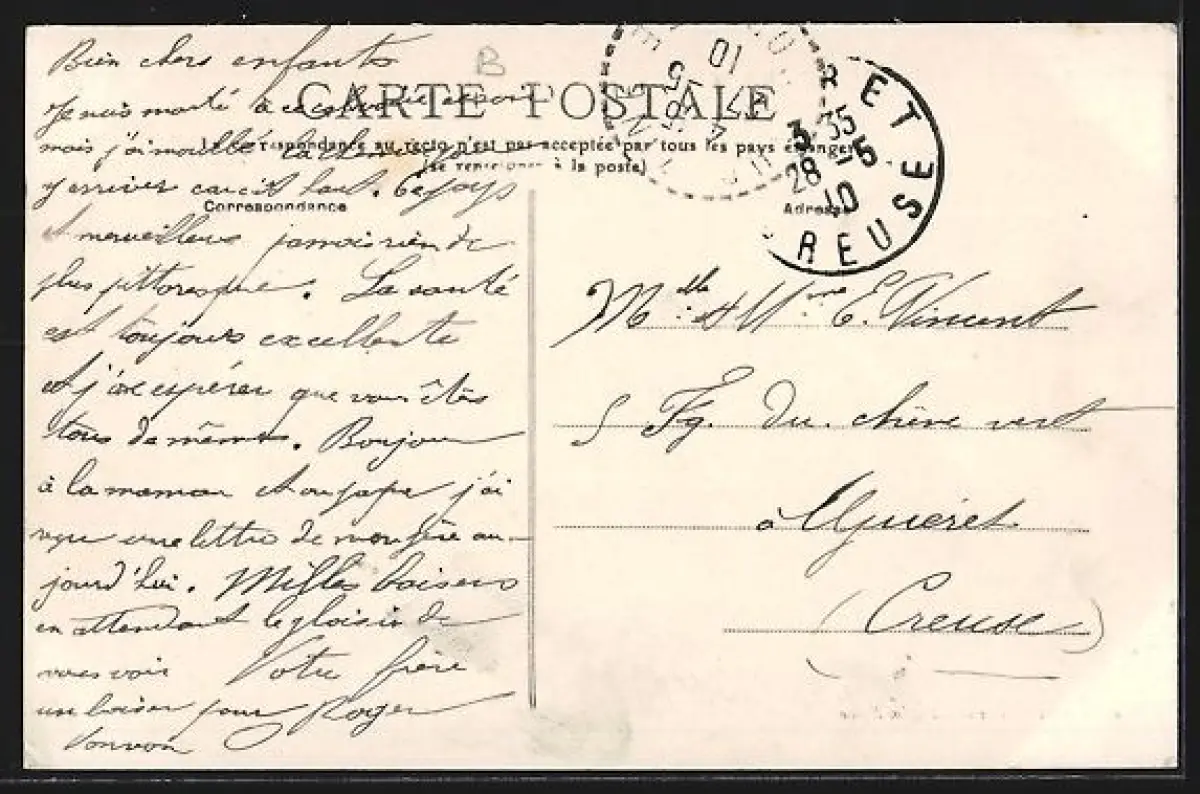 Bien chers enfants
CARTE POSTALE
B
Je suis monté à
mais j'ai mouillé la chemise pour
La Correspondance au recto n'est pas acceptée par tous les pays étrangers
(se renseigner à la poste)
y arriver car c'est haut. Ce pays
Correspondance
Adresse
est merveilleux jamais rien de
plus pittoresque. La santé
est toujours excellente
et j'ose espérer que vous êtes
tous de même. Bonjour
à la maman et au papa j'ai
reçu une lettre de mon frère au-
jourd'hui. Milles baisers
en attendant le plaisir de
vous voir Votre frère
un baiser pour Roger
Vonvon
ET
3 35
28 - 5
10
REUSE
10
Mlle et Mme E. Vincent
5 Fg. du chêne vert
à Guéret
(Creuse)